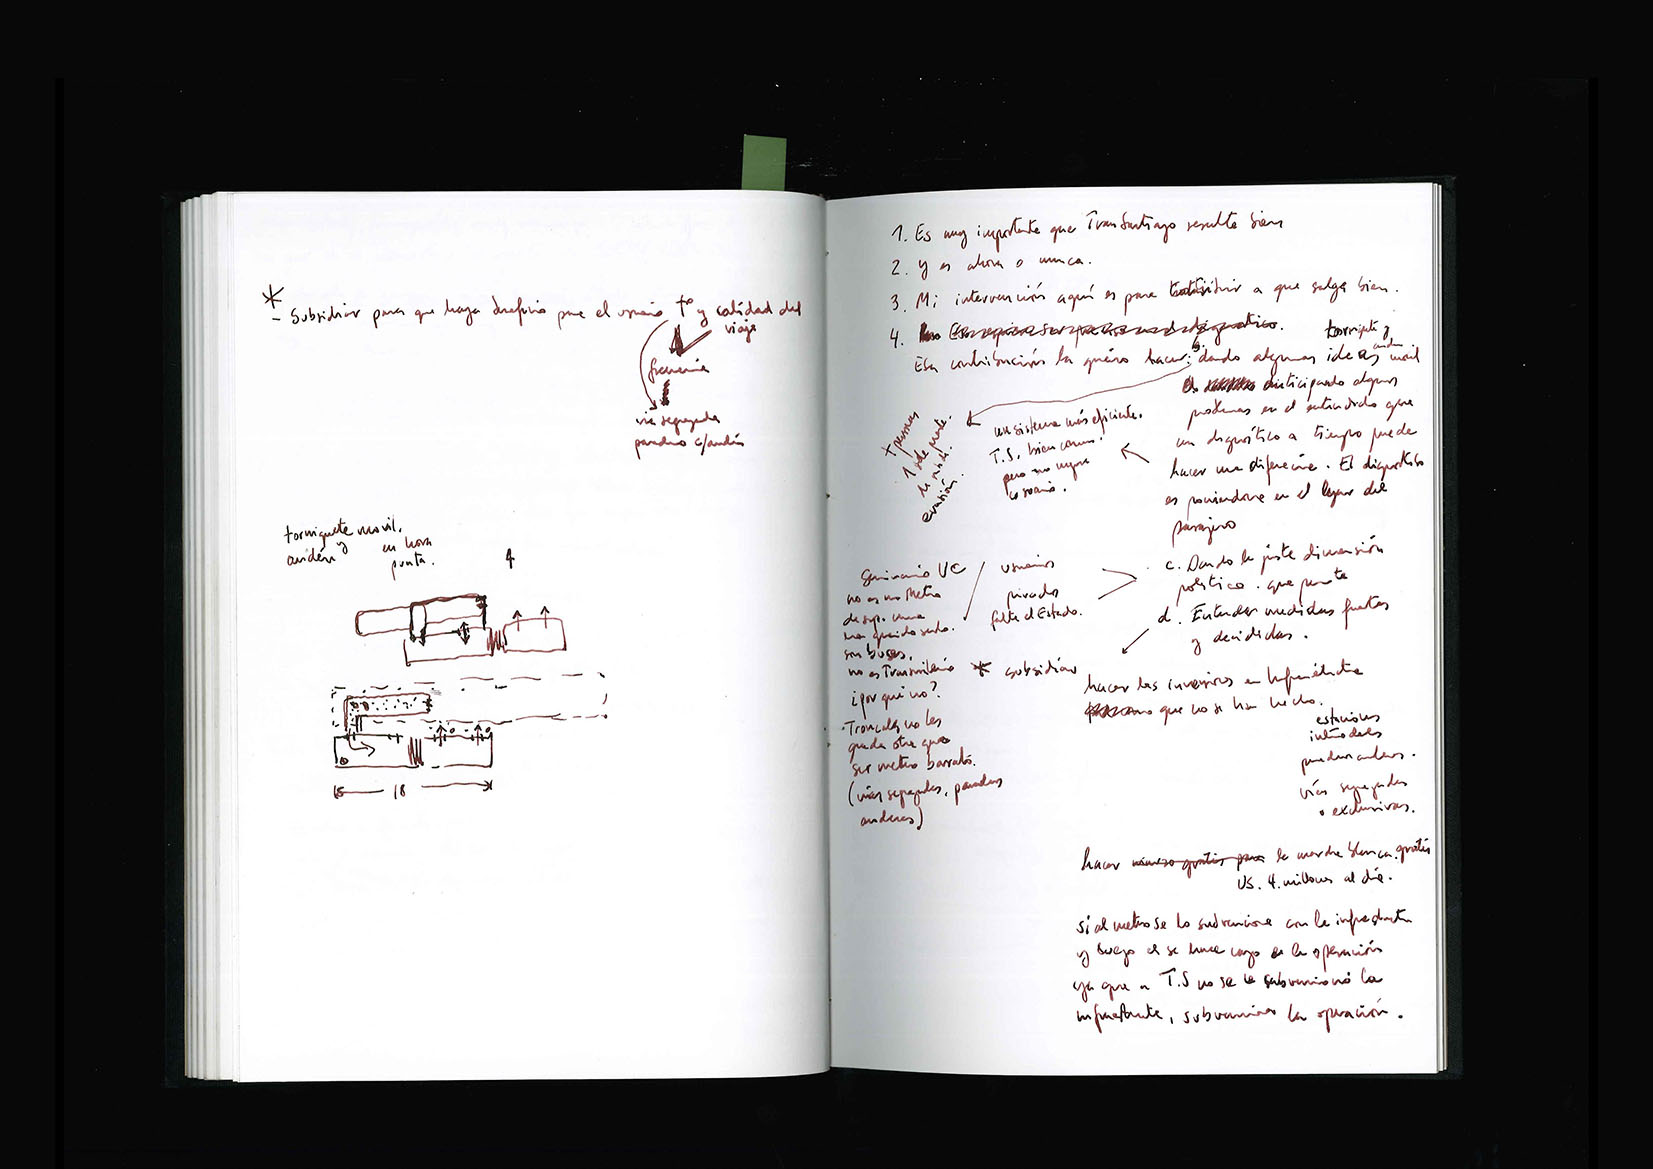 * - Subsidiar para que haya beneficio para el usuario tº y calidad del
viaje
frecuencia
via segregada
paradero c/andén
torniquete movil,
andén y en hora
punta.
4
18
1. Es muy importante que TranSantiago resulte bien
2. y es ahora o nunca.
3. Mi intervención aquí es para contribuir a que salga bien.
4.
Esa contribución la quiero hacer: dando algunas ideas
torniquete y
anden movil
b. anticipando algunos
problemas en el entendido que
un diagnóstico a tiempo puede
hacer una diferencia. El diagnóstico
es poniendose en el lugar del
pasajero
+ personas
evasión.
un sistema más eficiente.
T.S. bien comun
pero no mejora
usuario.
c. Dando la justa dimensión
política. que
d. Entender medidas fuertes
y decididas.
usuarios
privados
falta el Estado.
Seminario UC
no es un Metro
de sup. nunca
ha querido serlo.
son buses,
no es Transmilenio
¿por qué no?
Troncales no les
queda otra que
ser metro barato.
(vías segregadas, paraderos
andenes)
* subsidiar
hacer las inversiones en Infraestructura
que no se han hecho.
estaciones
intermodales
paraderos andenes.
vías segregadas
o exclusivas.
hacer nuestro gratis para la marcha blanca. gratis
US. 4. millones al día.
si al metro se lo subvenciona con la infraestructura
y luego el se hace cargo de la operación
ya que a T.S no se le subvencionó la
infraestructura, subvencionar la operación.